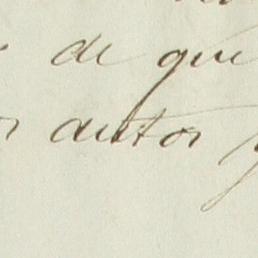 de que
autos y